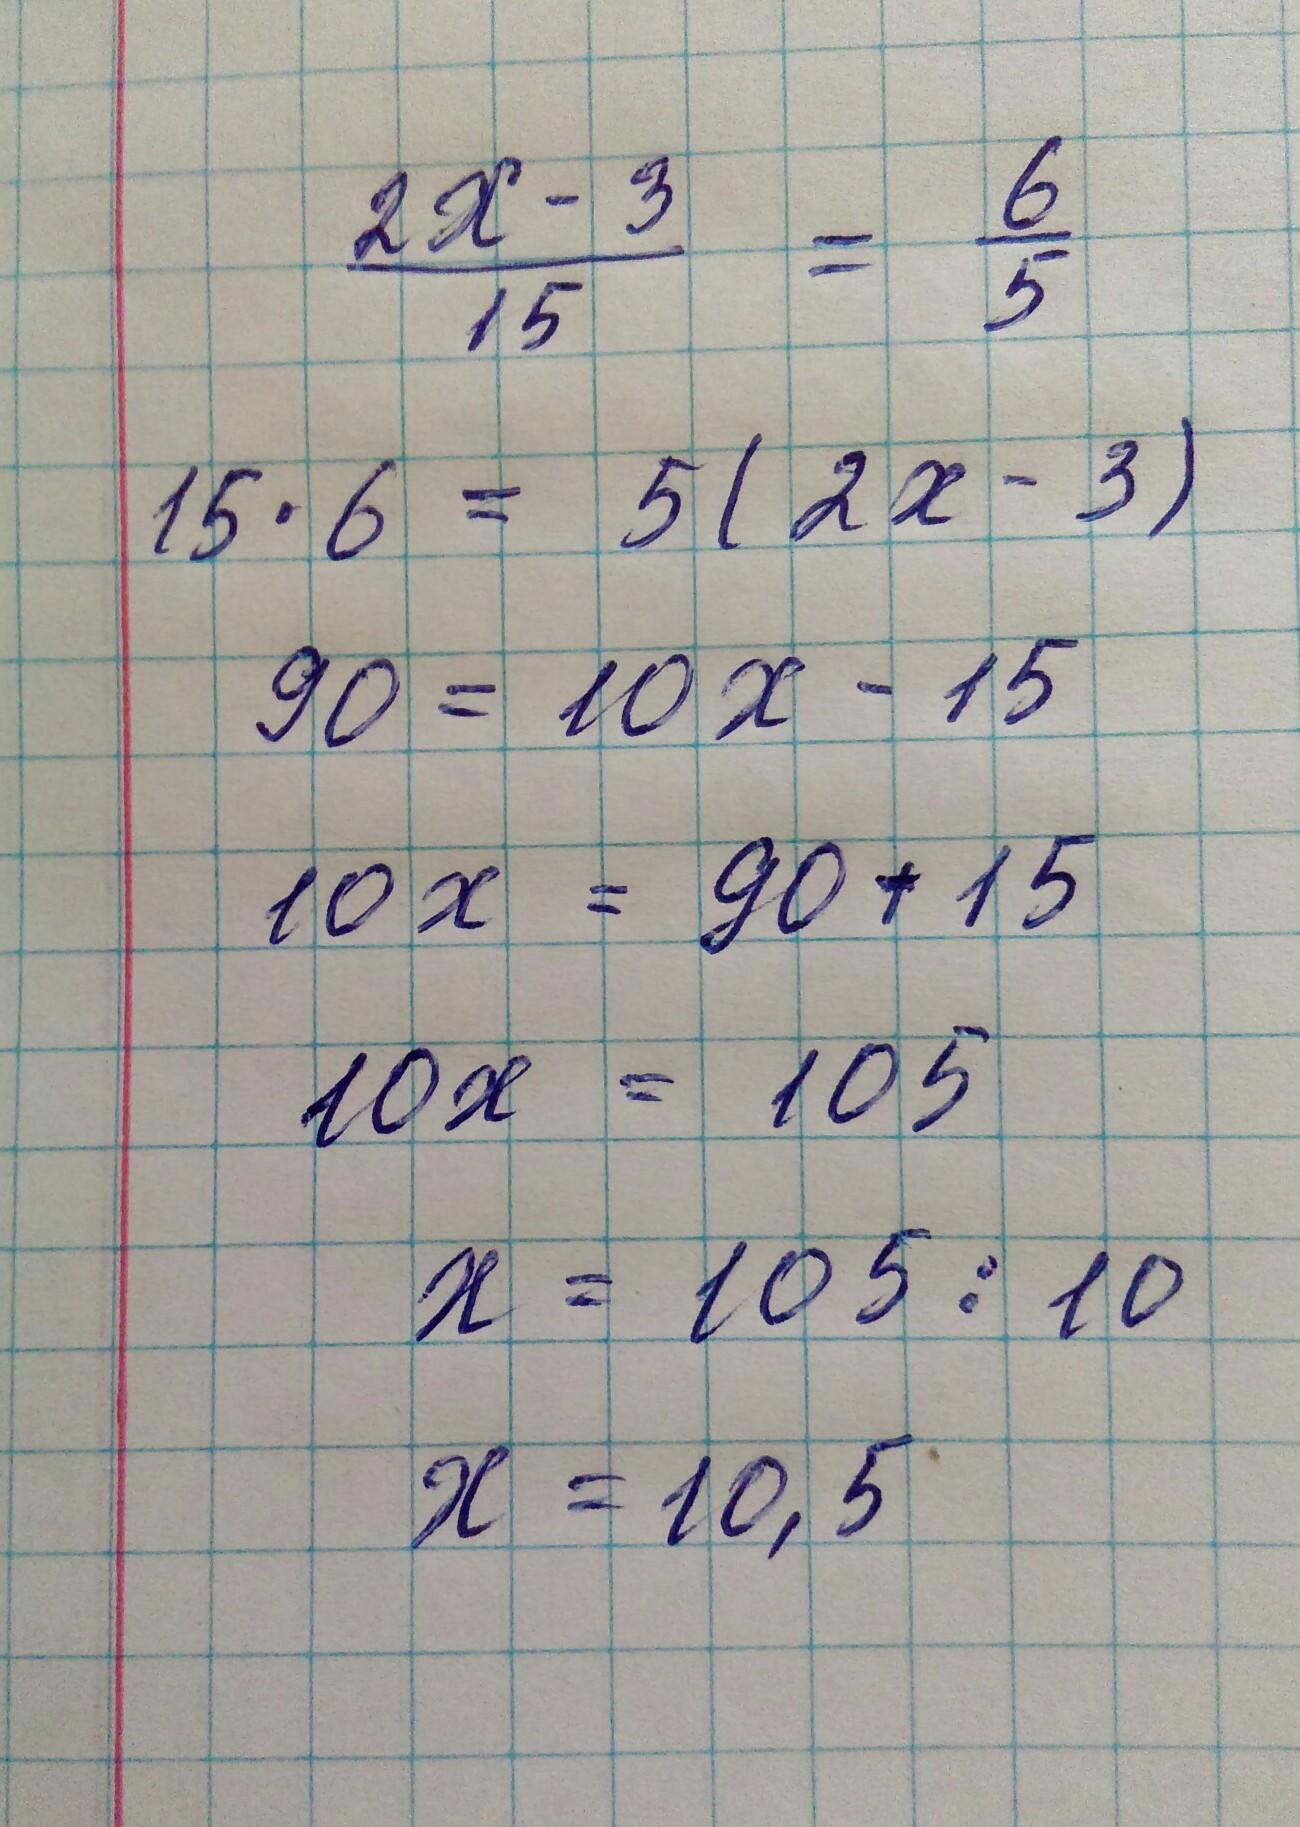 (2x - 3)/15 = 6/5
15 · 6 = 5(2x - 3)
90 = 10x - 15
10x = 90 + 15
10x = 105
x = 105 : 10
x = 10,5